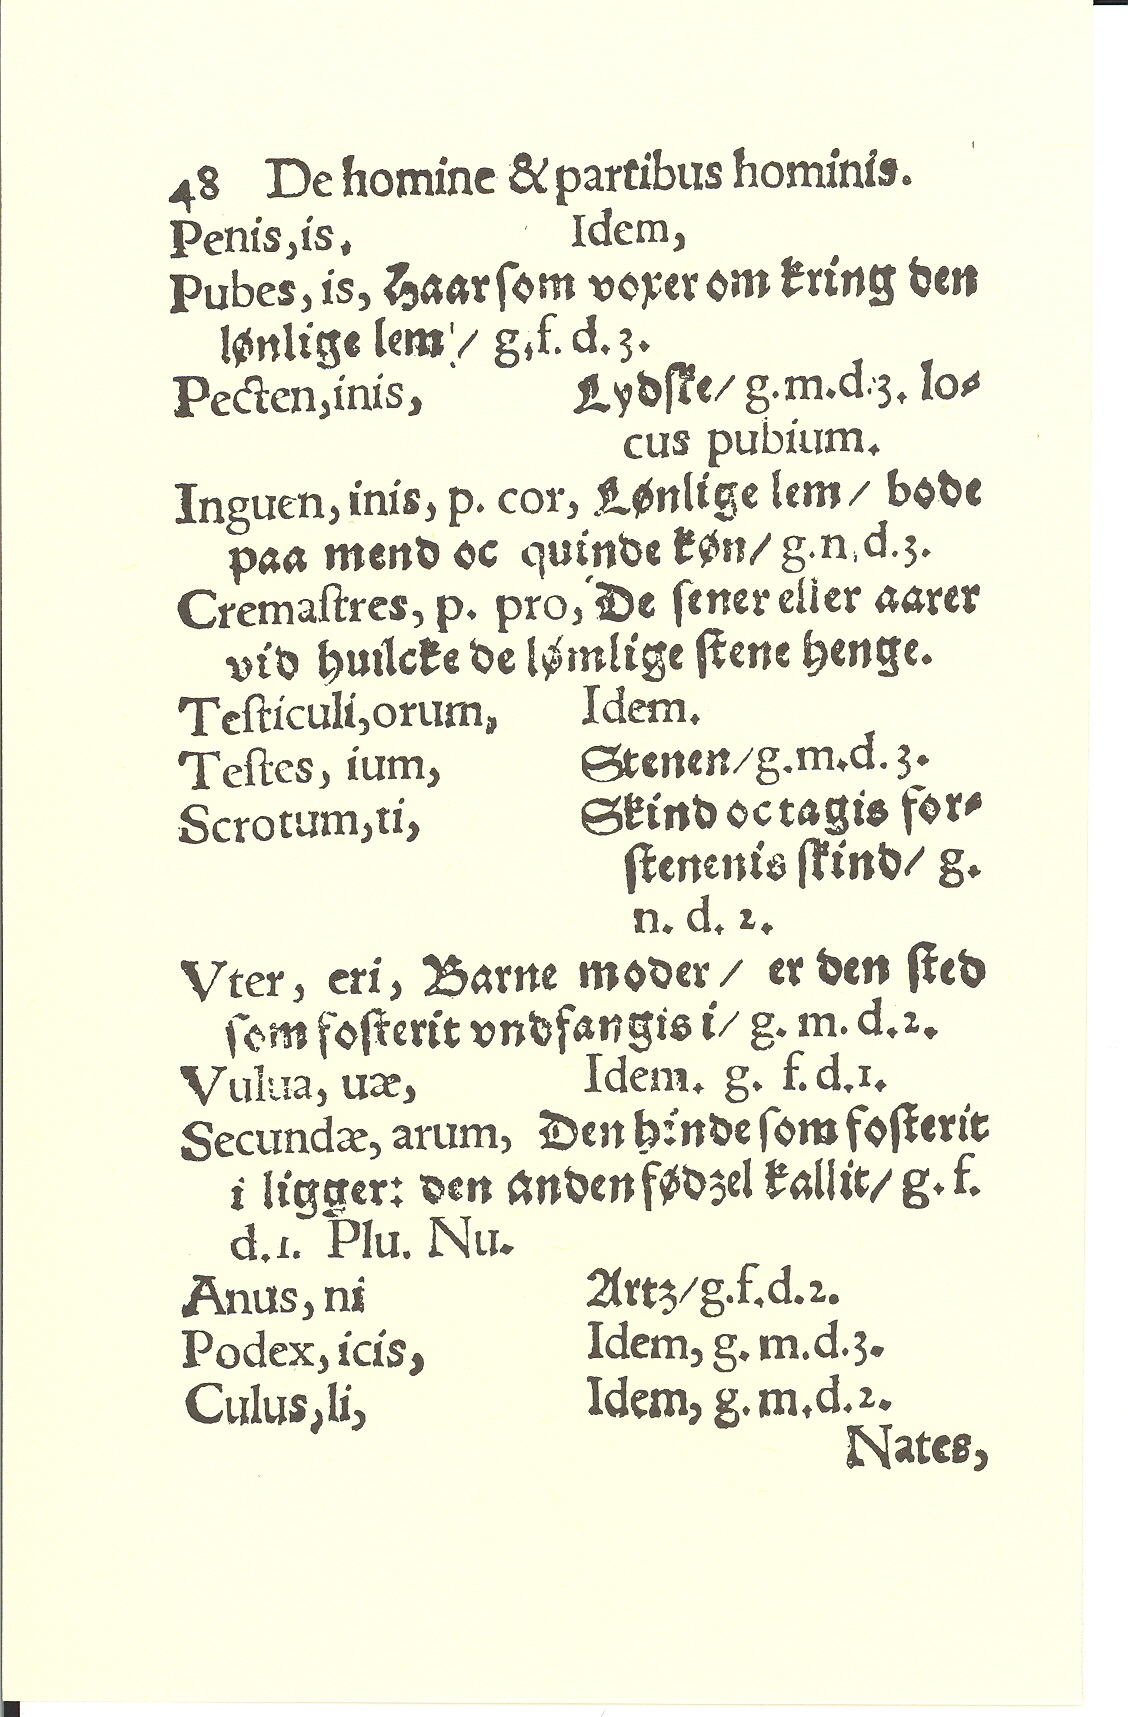 48 De homine & partibus hominis.
Penis, is, Idem,
Pubes, is, Haar som voxer om kring den
lønlige lem / g. f. d. 3.
Pecten, inis, Lydſke / g. m. d. 3. lo⸗
cus pubium.
Inguen, inis, p. cor, Lønlige lem / bode
paa mend oc quinde køn / g. n. d. 3.
Cremaſtres, p. pro, De ſener eller aarer
vid huilcke de lømlige ſtene henge.
Teſticuli, orum, Idem.
Teſtes, ium, Stenen / g. m. d. 3.
Scrotum, ti, Skind oc tagis for⸗
ſtenenis ſkind / g.
n. d. 2.
Vter, eri, Barne moder / er den ſted
ſom foſterit vndfangis i / g. m. d. 2.
Vulua, uæ, Idem. g. f. d. 1.
Secundæ, arum, Den hinde ſom foſterit
i ligger: den anden fødzel kallit / g. f.
d. 1. Plu. Nu.
Anus, ni Artz / g. f. d. 2.
Podex, icis, Idem, g. m. d. 3.
Culus, li, Idem, g. m. d. 2.
Nates,